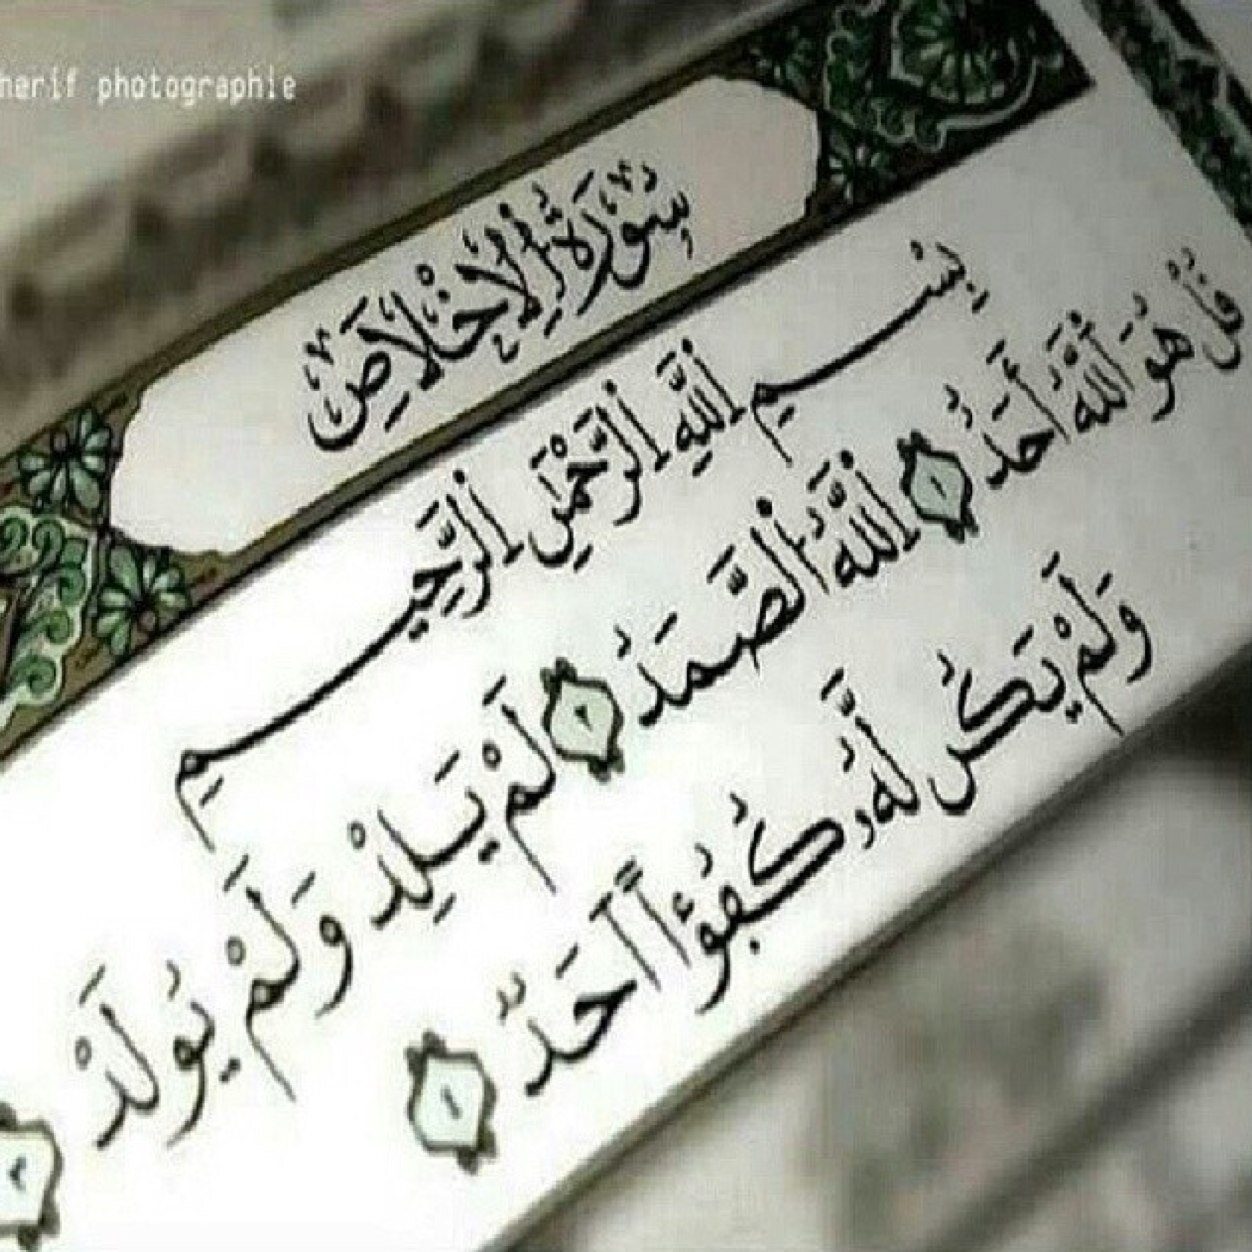 herif photographie
سُورَةُ ٱلْإِخْلَاصِ
بِسْمِ ٱللَّهِ ٱلرَّحْمَٰنِ ٱلرَّحِيمِ
قُلْ هُوَ ٱللَّهُ أَحَدٌ ١ ٱللَّهُ ٱلصَّمَدُ ٢ لَمْ يَلِدْ وَلَمْ يُولَدْ ٣
وَلَمْ يَكُن لَّهُۥ كُفُؤًا أَحَدٌۢ